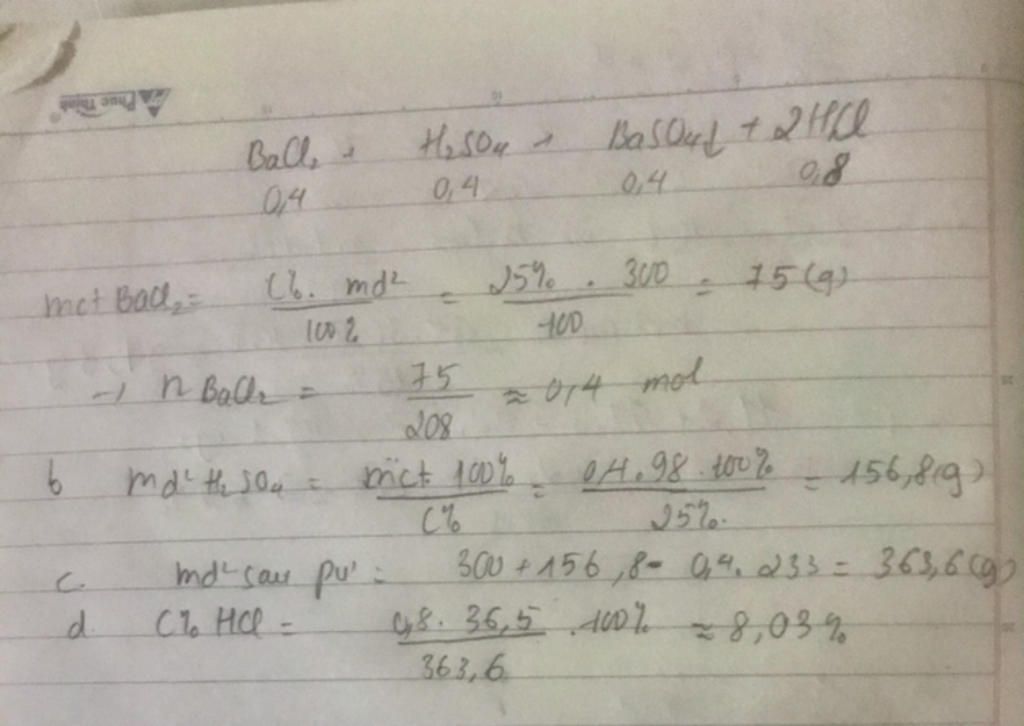 Phuc Thinh
BaCl₂ + H₂SO₄ → BaSO₄↓ + 2HCl
0,4 0,4 0,4 0,8
mct BaCl₂ = C%. md² / 100% = 25% . 300 / 100 = 75 (g)
→ n BaCl₂ = 75 / 208 ≈ 0,4 mol
b md² H₂SO₄ = mct. 100% / C% = 0,4.98.100% / 25% = 156,8(g)
c. md² sau pư = 300 + 156,8 - 0,4.233 = 363,6 (g)
d. C% HCl = 0,8.36,5 / 363,6 .100% ≈ 8,03%